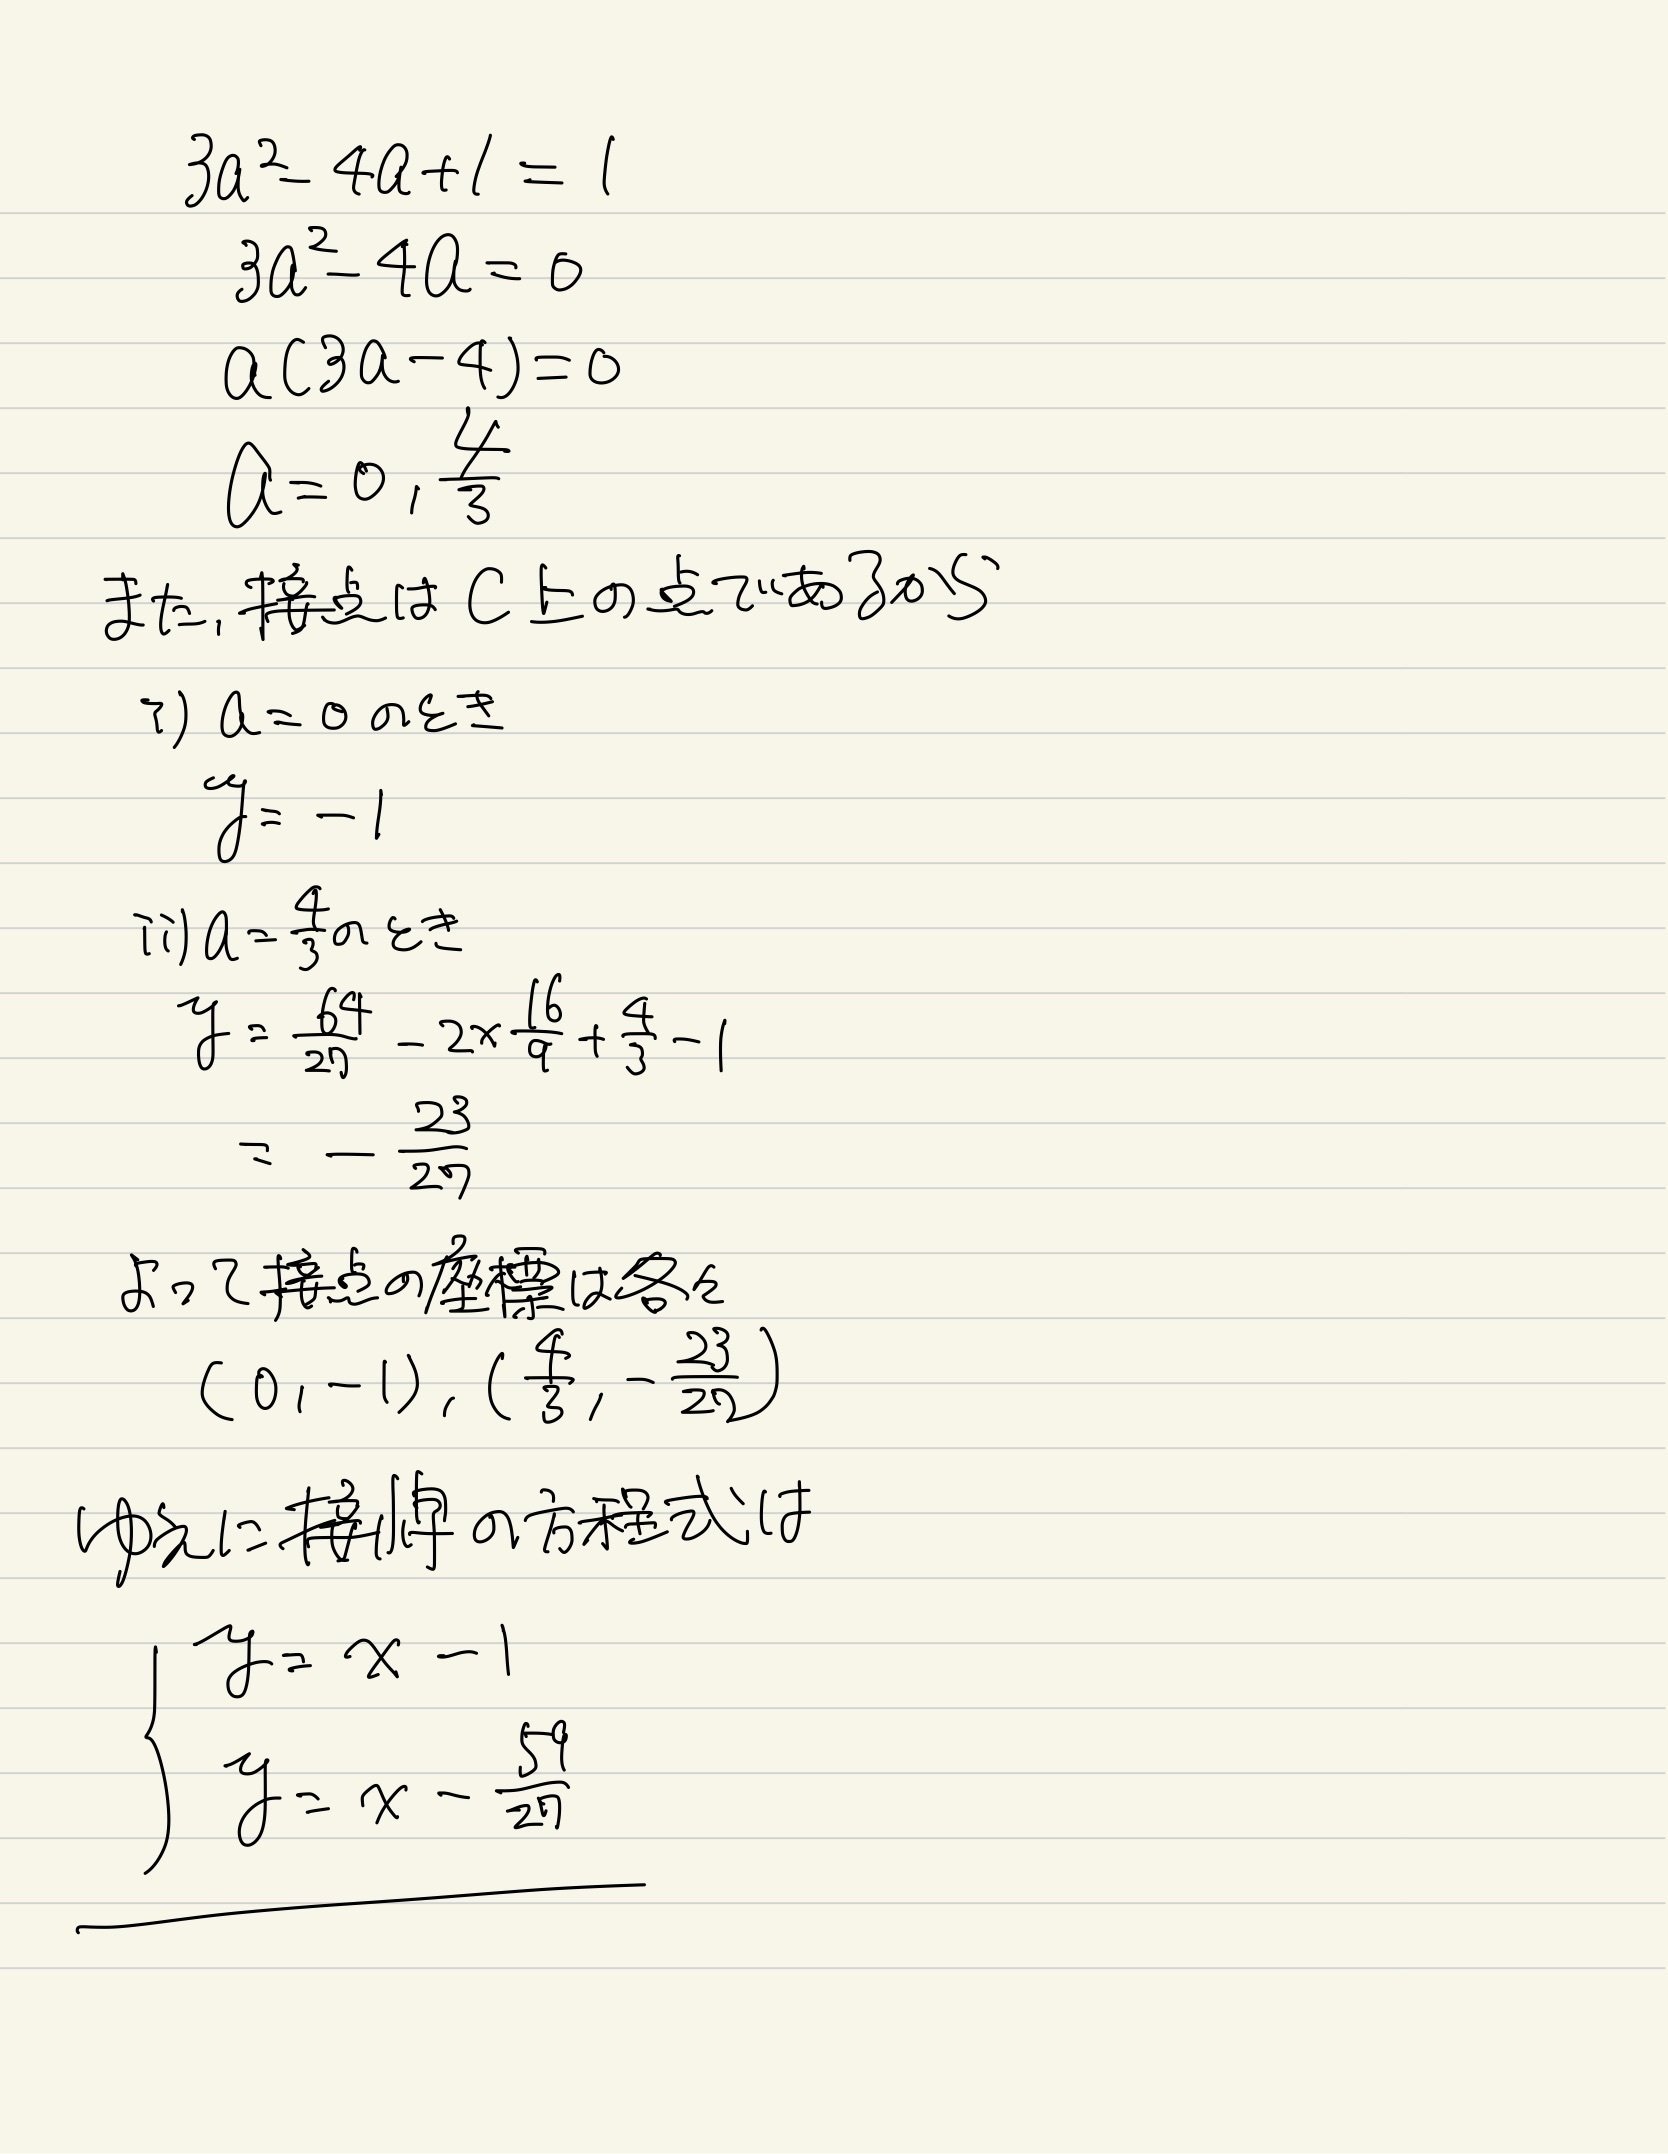 3a²-4a+1=1
3a²-4a=0
a(3a-4)=0
a=0,4/3
また,接点はC上の点であるから
i) a=0のとき
y=-1
ii) a=4/3のとき
y=64/27-2×16/9+4/3-1
=-23/27
よって接点の座標は各々
(0,-1),(4/3,-23/27)
ゆえに接線の方程式は
y=x-1
y=x-59/27